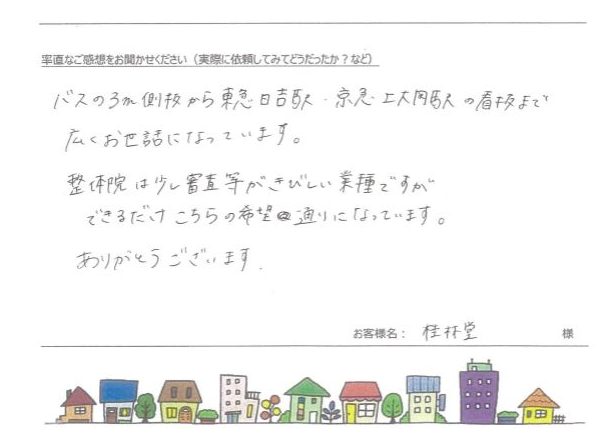 率直なご感想をお聞かせください（実際に依頼してみてどうだったか？など）
バスの 側板から東急日吉駅・京急上大岡駅の看板まで
広くお世話になっています。
整体院は少し審査等がきびしい業種ですが
できるだけこちらの希望通りになっています。
ありがとうございます.
お客様名： 桂林堂 様